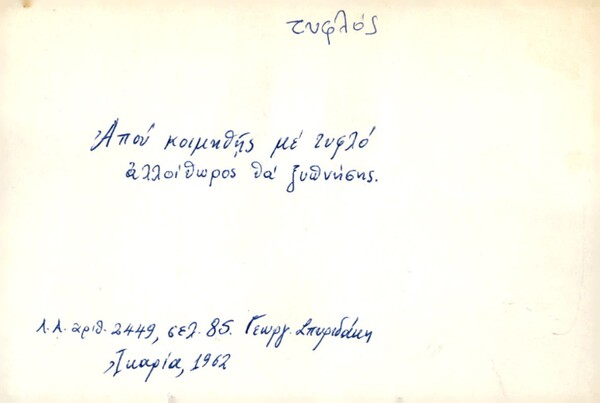 τυφλός
Ἀπού κοιμηθῇς μέ τυφλό
ἀλλοίθωρος θά ξυπνήσῃς.
Λ.Α. ἀριθ. 2449, σελ. 85. Γεωργ. Σπυριδάκη
Ἰκαρία, 1962